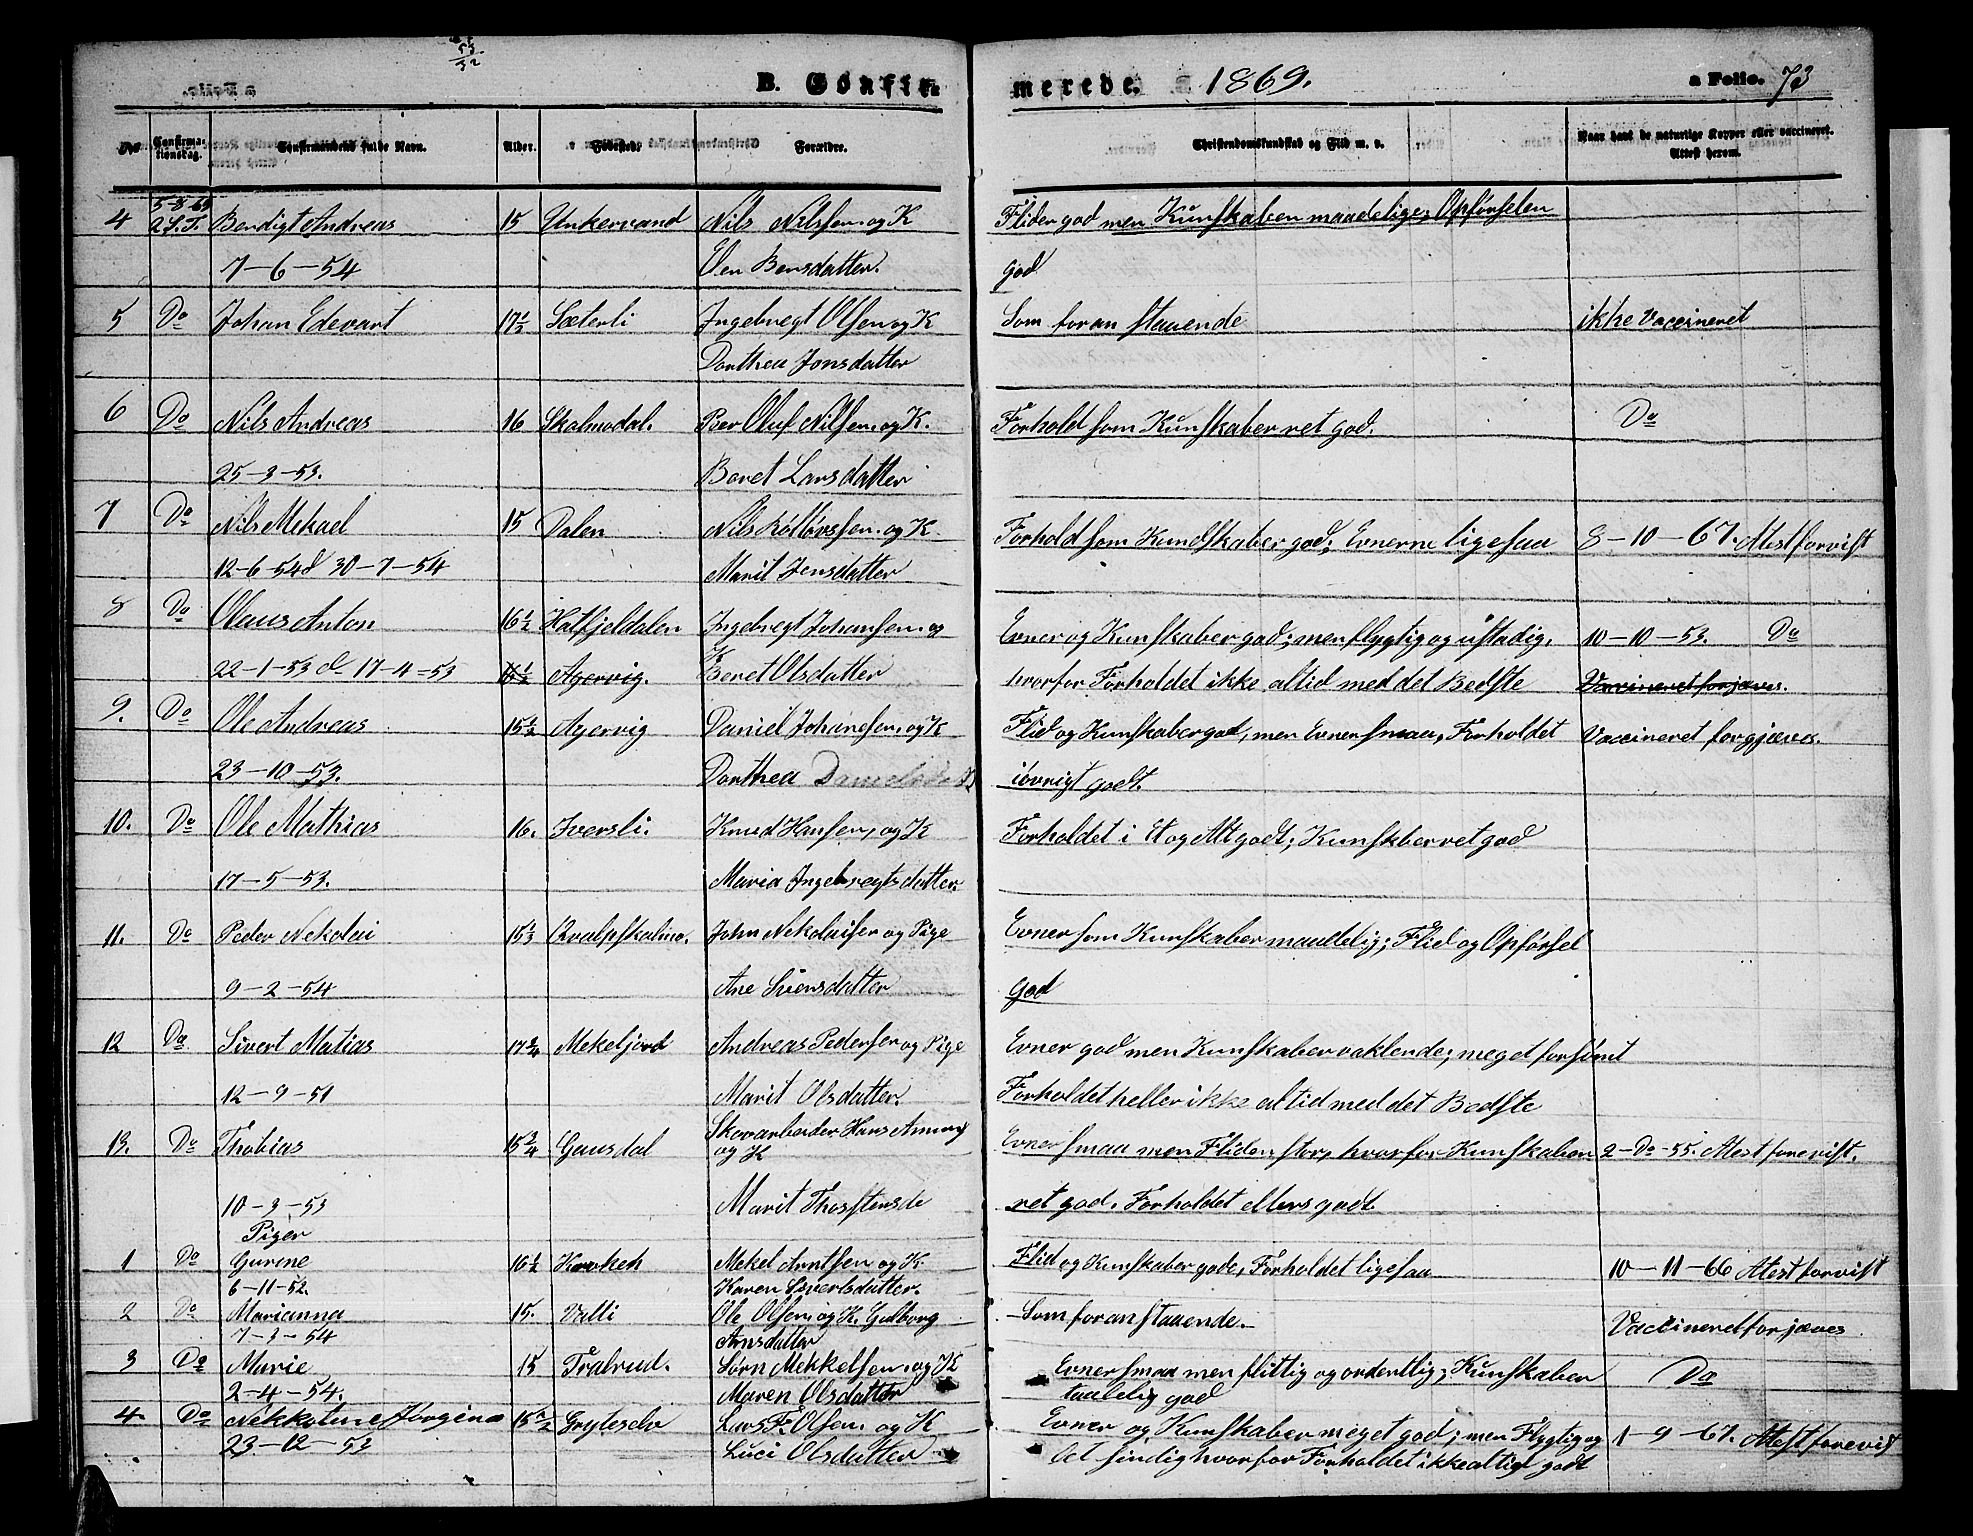 B. Confirmerede. 1869. a Folio. 73
No Confirmationsdag. Confirmandens fulde Navn. Alder. Fødested. Forældre. Christendomskundskab og Flid m. v. Naar havt de naturlige Kopper eller vaccineret. Attest herom.
4 5-8-69 2 S.T. Bendigt Andreas 15 Unkervand Nils Nilssen og K Fliden god men Kunskaben maadelige; Opførselen
7-6-54 Bensdatter. god
5 Do Johan Edevart 17½ Sæterli Ingebregt Olsen og K Som foranstaaende ikke Vaccineret
Dorthea Jonsdatter
6 Do Nils Andreas 16 Skalmodal. Per Oluf Nilsen og K. Forhold som Kunskaber ret god. Do
25-3-53. Beret Larsdatter
7 Do Nils Mekael 15 Dalen Nils og K Forhold som Kundskaber god; Evnerne ligesaa 8-10-67. Atest forvist
12-6-54 d 30-7-54 Marit Jensdatter
8 Do Olaus Anton 16½ Hatfjeldalen Ingebregt Johansen og Evner og Kunskaber god; men flygtig og ustadig, 10-10-53. Do
22-1-53 d 17-4-53 16½ Agervig. K Beret Olsdatter hvorfor Forholdet ikke altid med det Bedste Vaccineret forjæves.
9. Do Ole Andreas 15½ Agervig Daniel Johansen og K Flid og Kunskaber god, men Evner smaa, Forholdet Vaccineret forgjæves.
23-10-53. Dorthea iøvrigt godt.
10. Do Ole Mathias 16. Iversli. Knud Hansen, og K Forholdet i Et og Alt godt; Kunskber ret god
17-5-53. Maria Ingebregtsdatter.
11. Do Peder Nekolai 15⅓ Kvalpskalmo. John Nekolaisen og Pige Evner som Kunskaber maadelig; Flid og Opførsel
9-2-54 Ane Sivensdatter god
12 Do Sivert Matias 17¾ Mekeljord Andreas Pedersen og Pige Evner god men Kunskaber vaklende; meget forsømt
12-9-51 Marit Olsdatter. Forholdet heller ikke altid med det Bedste
13. Do Thobias 15¾ Gausdal Skovarbeider Hans og K Evner smaa men Fliden stor, hvorfor Kunskaben 2-Do-55. Atest forevist.
10-3-53 Marit Thorstensda ret god. Forholdet ellers godt
Piger
1 Do Gurine 16½ Mekel Arntsen og K Flid og Kunskaber gode, Forholdet ligesaa 10-11-66 Atest forvist
6-11-52. Karen Sivertsdatter.
2 Do Marianna 15. Valli Ole Olsen og K. Gulborg Som foranstaaende. Vaccineret forjæves
7-3-54 Arnsdatter
3 Do Marie 15 Tralrud. Sørn Mekkelsen og K Evner smaa men flittig og ordentlig; Kunskaber Do
2-4-54. Maren Olsdatter taalelig god
4. Do Nekkoline Jørgine 15½ Grytselv Lars Olsen og K Evner og Kunskaber meget god; men Flygtig og 1-9-67. Atest forevist
23-12-53 Luci Olsdatter hvorfor Forholdet ikke altid godt